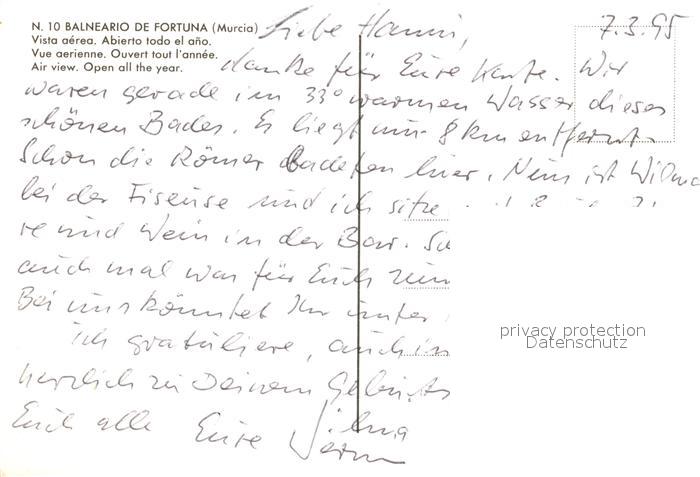 N. 10 BALNEARIO DE FORTUNA (Murcia)
Vista aérea. Abierto todo el año.
Vue aerienne. Ouvert tout l'année.
Air view. Open all the year.
7.3.95
Liebe Hanni,
danke für Eure Karte. Wir
waren gerade im 33° warmen Wasser dieses
schönen Bades. Es liegt nur 8 km entfernt.
Schon die Römer badeten hier. Nun ist Wilma
bei der Friseuse und ich sitze
re und Wein in der Bar.
auch mal was für Euch zum
Bei uns könntet Ihr unter
Ich gratuliere, auch im
herzlich zu Deinem Geburts
Euch alle Eure Wilma
privacy protection
Datenschutz